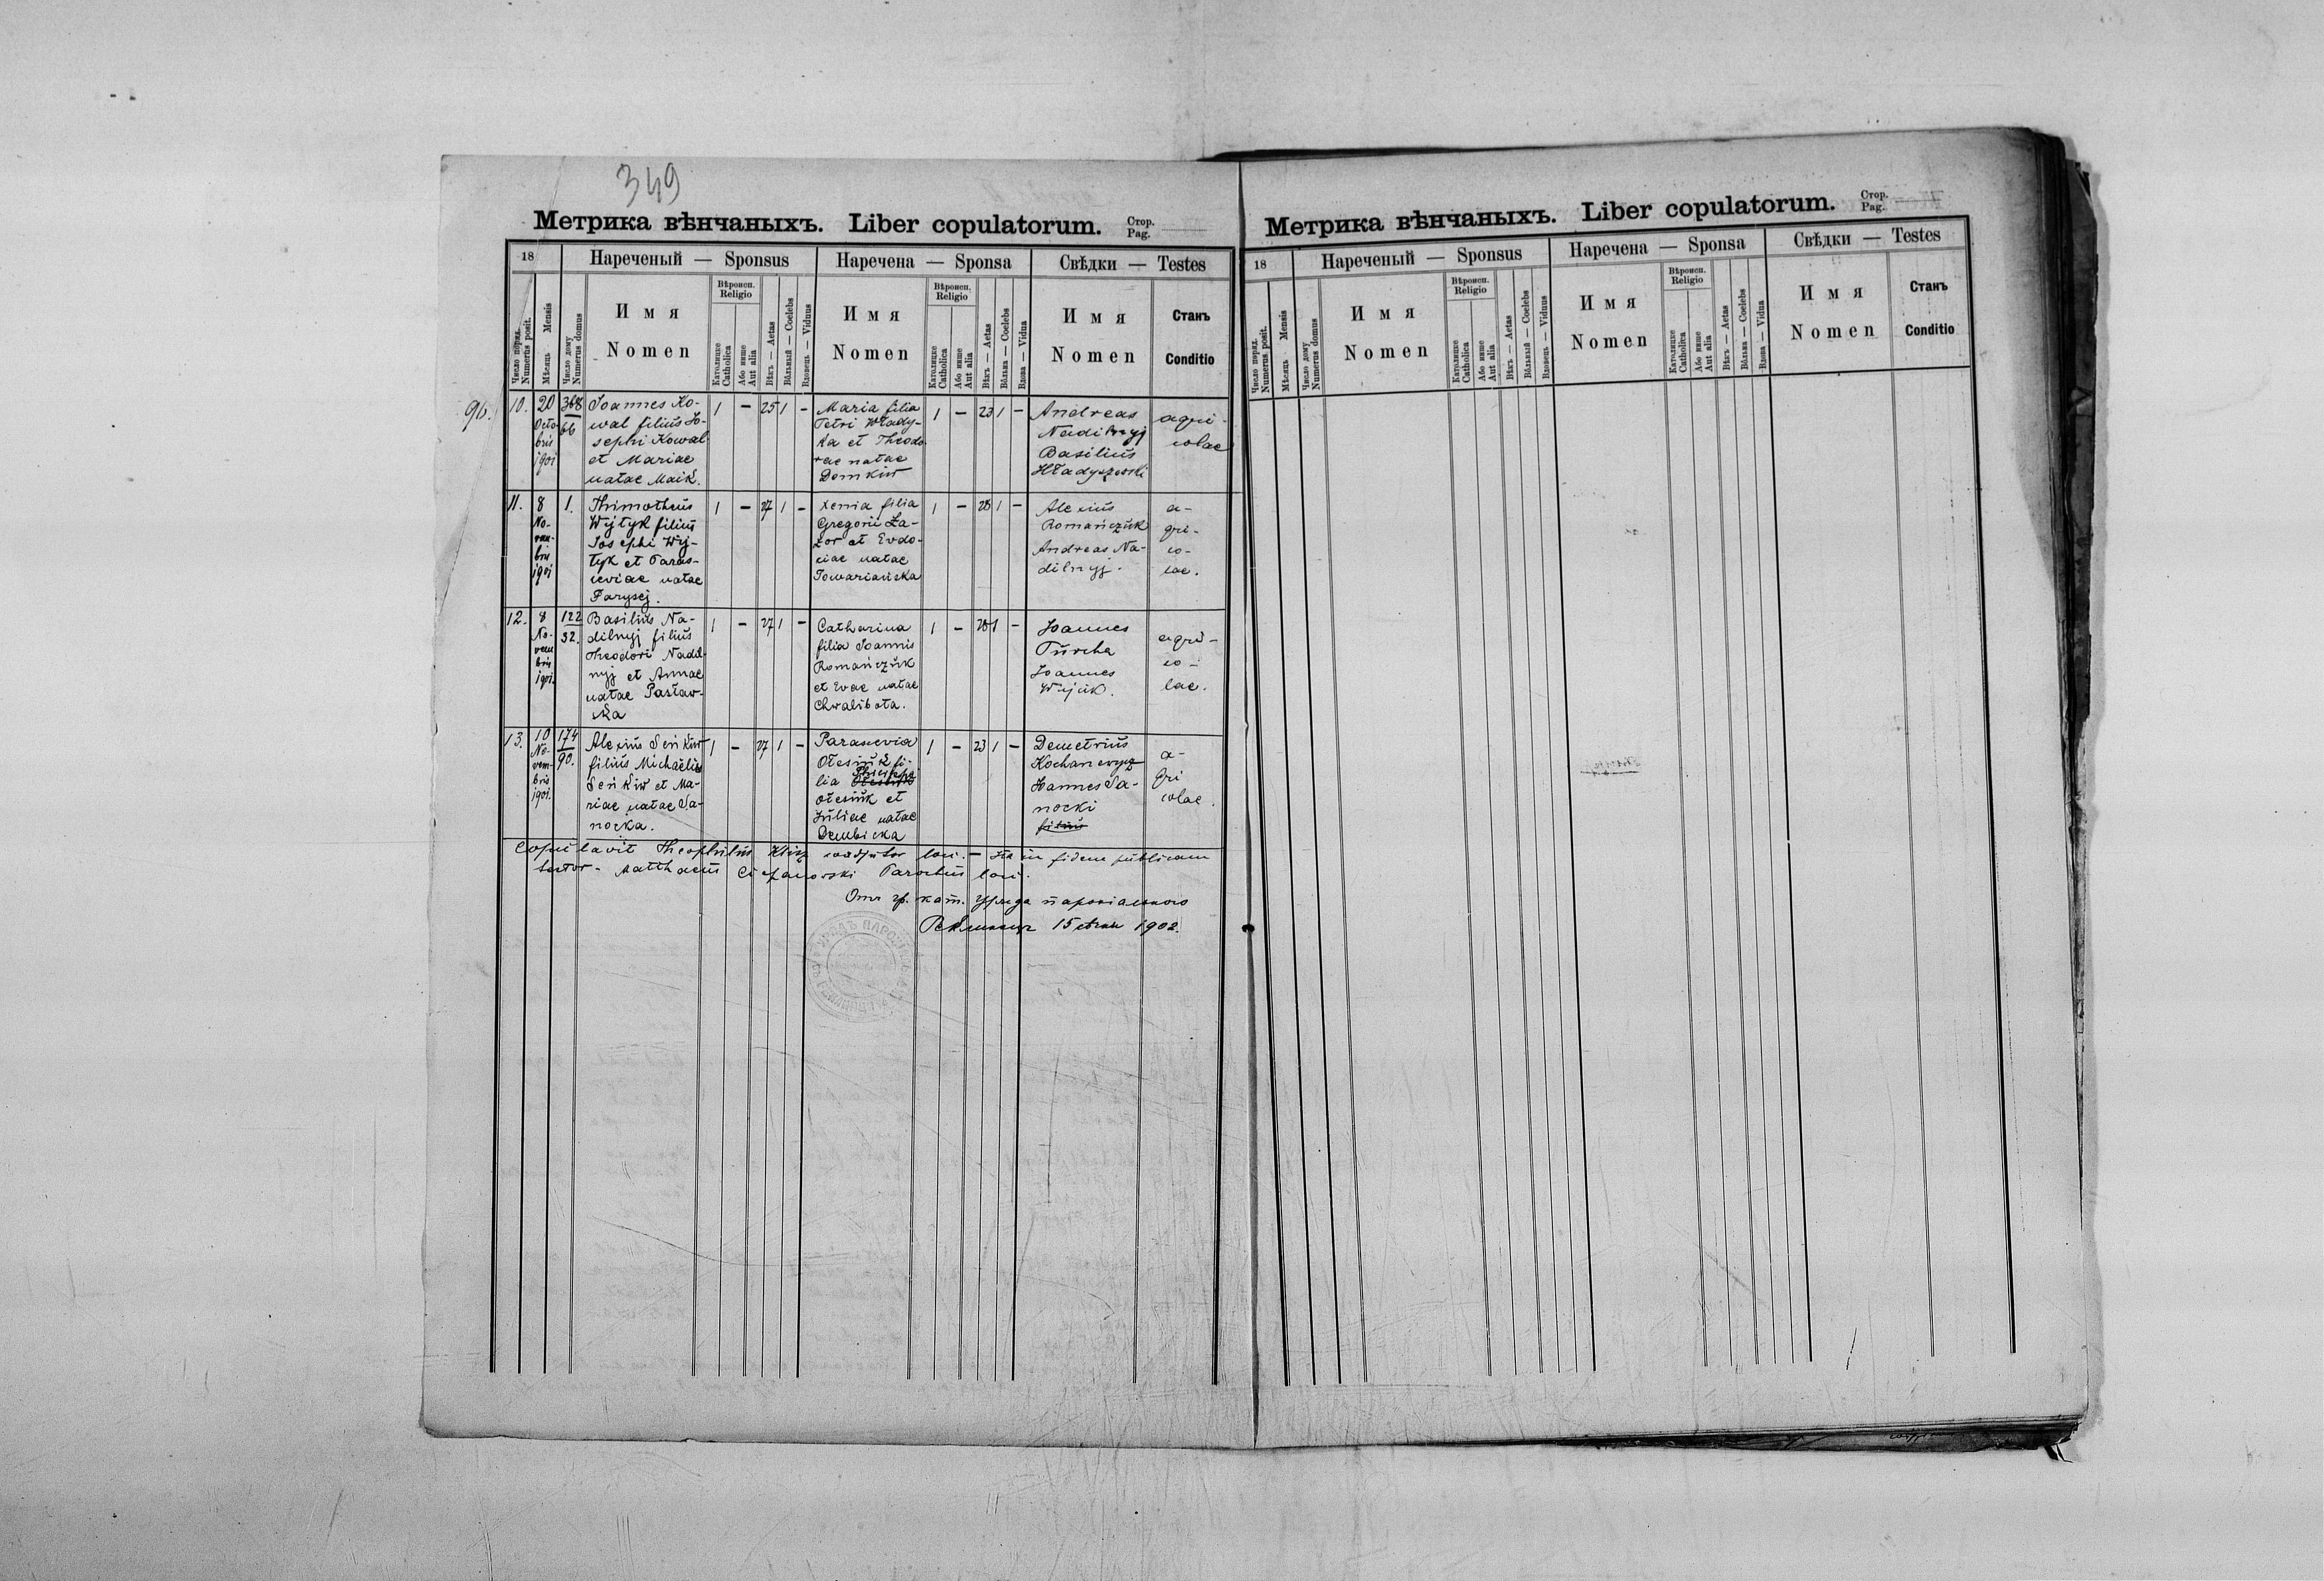 349
Метрика вѣнчаныхъ. Liber copulatorum. Стор. Pag.
18
Нареченый — Sponsus
Наречена — Sponsa
Свѣдки — Testes
Число поряд. Numerus posit.
Мѣсяць Mensis
Число дому Numerus domus
Имя
Nomen
Вѣроисп.
Religio
Католицке Catholica
Або инше Aut alia
Вѣкъ — Aetas
Вôльный — Coelebs
Вдовець — Viduus
Имя
Nomen
Вѣроисп.
Religio
Католицке Catholica
Або инше Aut alia
Вѣкъ — Aetas
Вôльна — Coelebs
Вдова — Vidua
Имя
Nomen
Станъ
Conditio
96.
10.
20
Octo-
bris
1901
368
66
Joannes Ko-
wal filius Jo-
sephi Kowal
et Mariae
natae Maik.
1 — 25 1 —
Maria filia
Petri Włady-
ka et Theodo-
rae natae
Domkiw
1 — 23 1 —
Andreas
Nadilnyj
Basilius
Hładyszowski
agri-
colae
11.
8
No-
vem-
bris
1901
1.
Thimotheus
Wijtyk filius
Josephi Wij-
tyk et Paras-
ceviae natae
Farysej.
1 — 27 1 —
Xenia filia
Gregorii Ła-
zor et Evdo-
ciae natae
Towariańska
1 — 28 1 —
Alexius
Romańczuk
Andreas Na-
dilnyj.
a-
gri-
co-
lae.
12.
8
No-
vem-
bris
1901.
122
32.
Basilius Na-
dilnyj filius
Theodori Nadil-
nyj et Annae
natae Pasław-
ska
1 — 27 1 —
Catharina
filia Joannis
Romańczuk
et Evae natae
Chwalibota.
1 — 28 1 —
Joannes
Turcha
Joannes
Wijuk.
agri-
co-
lae.
13.
10
No-
vem-
bris
1901.
174
90.
Alexius Seńkiw
filius Michaelis
Seńkiw et Ma-
riae natae Sa-
nocka.
1 — 27 1 —
Parascevia
Ołesiuk fi-
lia
Ołesiuk et
Juliae natae
Dembicka
1 — 23 1 —
Demetrius
Kochanewycz
Joannes Sa-
nocki
filius
a-
gri
colae.
Copulavit Theophilus coadjutor loci. — Ita in fidem publicam
testor — Matthaeus Parochus loci.
Отъ гр. кат. уряда парохіального
15 1902.
Метрика вѣнчаныхъ. Liber copulatorum. Стор. Pag.
18
Нареченый — Sponsus
Наречена — Sponsa
Свѣдки — Testes
Число поряд. Numerus posit.
Мѣсяць Mensis
Число дому Numerus domus
Имя
Nomen
Вѣроисп.
Religio
Католицке Catholica
Або инше Aut alia
Вѣкъ — Aetas
Вôльный — Coelebs
Вдовець — Viduus
Имя
Nomen
Вѣроисп.
Religio
Католицке Catholica
Або инше Aut alia
Вѣкъ — Aetas
Вôльна — Coelebs
Вдова — Vidua
Имя
Nomen
Станъ
Conditio